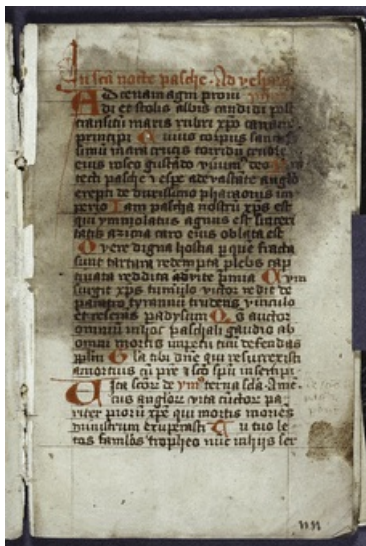 In sca nocte pasche. Ad vesperas
Ad cenam agni provi ymn
di et stolis albis candidi post
transitū maris rubri xpo canam
principi Cuius corpus sanc
in ara crucis torridū cruore
eius roseo gustādo vivim deo
tecti pasche vespe a devastāte anglo
erepti de durissimo pharaonis im
perio Iam pascha nostrū xps est
qui ymmolatus agnus est sinceri
tatis azima caro eius oblata est
O vere digna hostia p que fracta
sunt tartara redempta plebs cap
tivata reddita ad vite pmia Cum
surgit xps tumulo victor redit de
baratro tyrannū trudens vinculo
et reserās padysum Qs auctor
omniū in hoc paschali gaudio ab
omni mortis impetu tuū defendas
pplm Gla tibi dne qui resurrexisti
a mortuis cū pre et sco spu in sempi
Vita scor de ymn
cus anglor vita cūctor pa
riter piorū xpe qui mortis moriēs
ministrum exuperasti Tu tuo le
tos famlos tropheo nūc in hijs ser